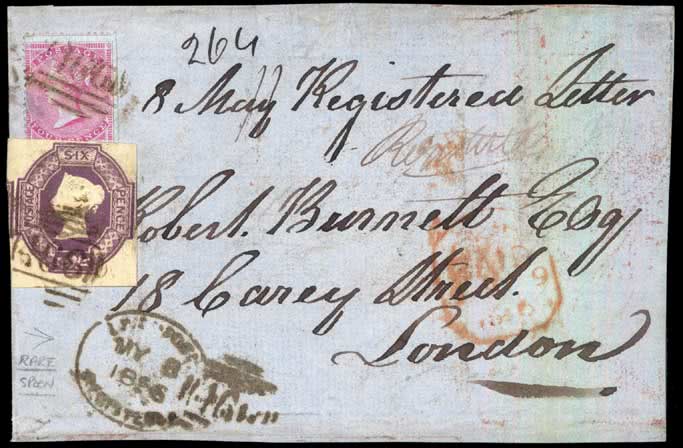 264
8 May Registered Letter
Registered
FOURPENCE
SIX PENCE
POSTAGE
Robert Burnett Esq
18 Carey Street.
London
PAID
9
MY 8
1856
RARE
SPOON